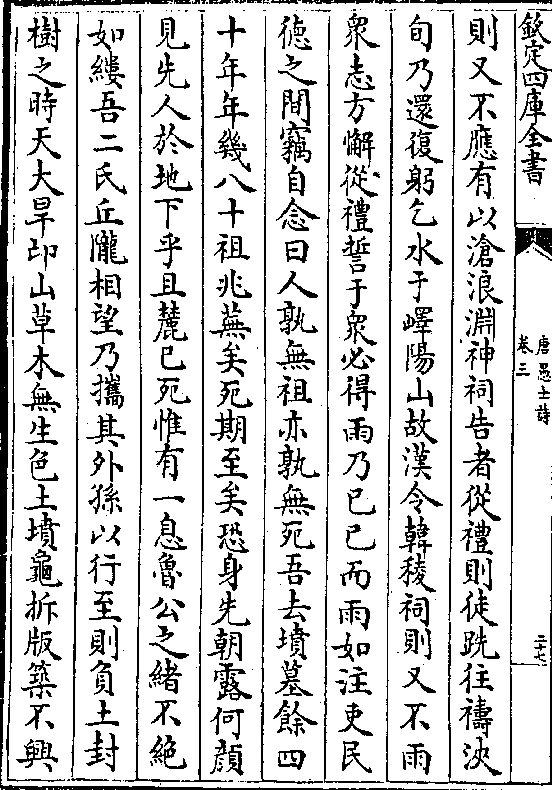 欽定四庫全書
唐愚士詩
卷三
二十七
則又不應有以滄浪淵神祠告者從禮則徒跣往禱浹
旬乃還復躬乞水于嶧陽山故漢令韓稜祠則又不雨
衆志方懈從禮誓于衆必得雨乃已已而雨如注吏民
徳之間竊自念曰人孰無祖亦孰無死吾去墳墓餘四
十年年幾八十祖兆蕪矣死期至矣恐身先朝露何顔
見先人於地下乎且麓已死惟有一息魯公之緒不絶
如縷吾二氏丘隴相望乃攜其外孫以行至則負土封
樹之時天大旱卬山草木無生色土墳龜拆版築不興